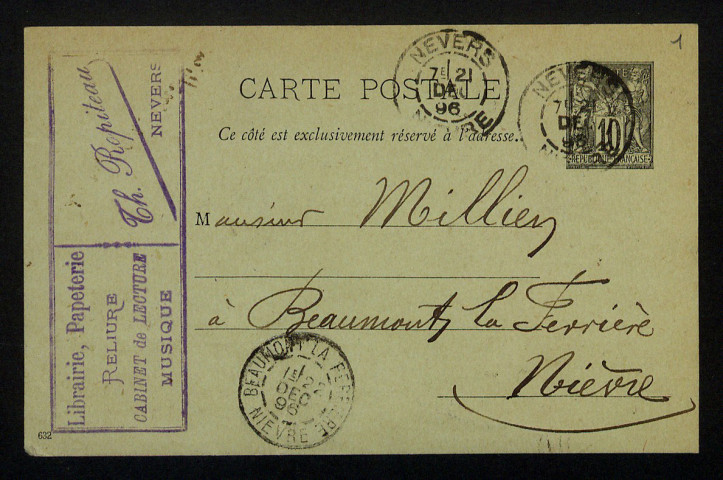 1
CARTE POSTALE
Ce côté est exclusivement réservé à l'adresse.
NEVERS
7E 21
DE
96
NIEVRE
NEVERS
7E 21
DE
96
10
REPUBLIQUE FRANÇAISE
Librairie, Papeterie
RELIURE
CABINET de LECTURE
MUSIQUE
Th. Ropiteau
NEVERS
Monsieur Millien
à Beaumont la Ferrière
Nièvre
BEAUMONT LA FERRIERE
1E 22
DEC
96
NIEVRE
632